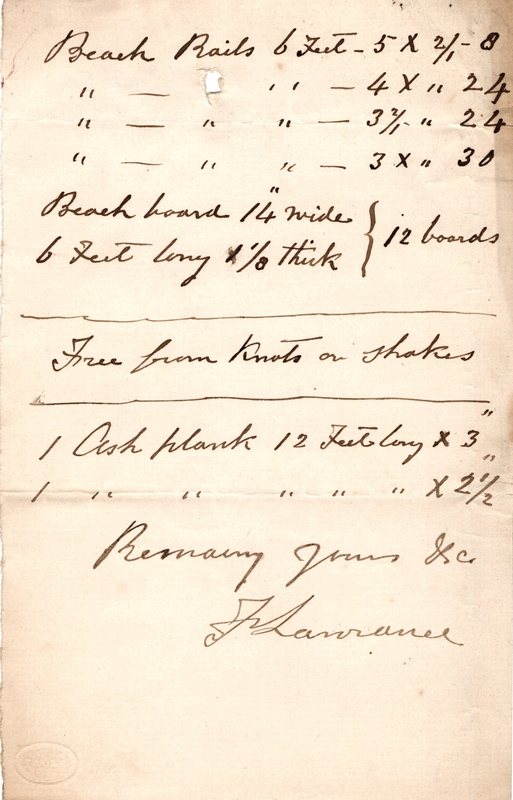 Beach Rails 6 Feet - 5 X 2/1 - 8
" — " " — 4 X " 24
" — " " — 3 2/1 " 24
" — " " — 3 X " 30
Beach board 14" wide } 12 boards
6 Feet long x 1/8 thick
Free from Knots or shakes
1 Ash plank 12 Feet long X 3"
1 " " " " " X 2 1/2"
Remaing yours &c
F Lawrance